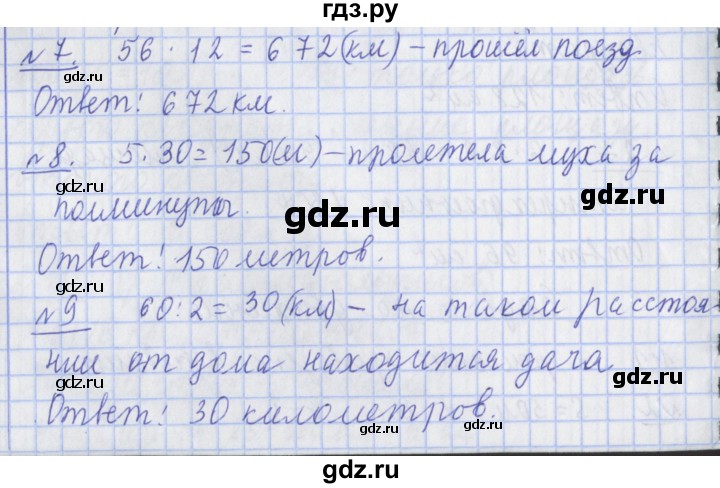 гдз.ру
№7. 56 · 12 = 672(км) – прошёл поезд
gdz.ru gdz.ru
Ответ: 672 км.
gdz.ru gdz.ru
№8. 5·30=150(м) – пролетела муха за
полминуты.
gdz.ru
Ответ: 150 метров.
gdz.ru gdz.ru
№9 60:2=30(км) – на таком расстоя
нии от дома находится дача
gdz.ru
Ответ: 30 километров.
gdz.ru gdz.ru
gdz.ru